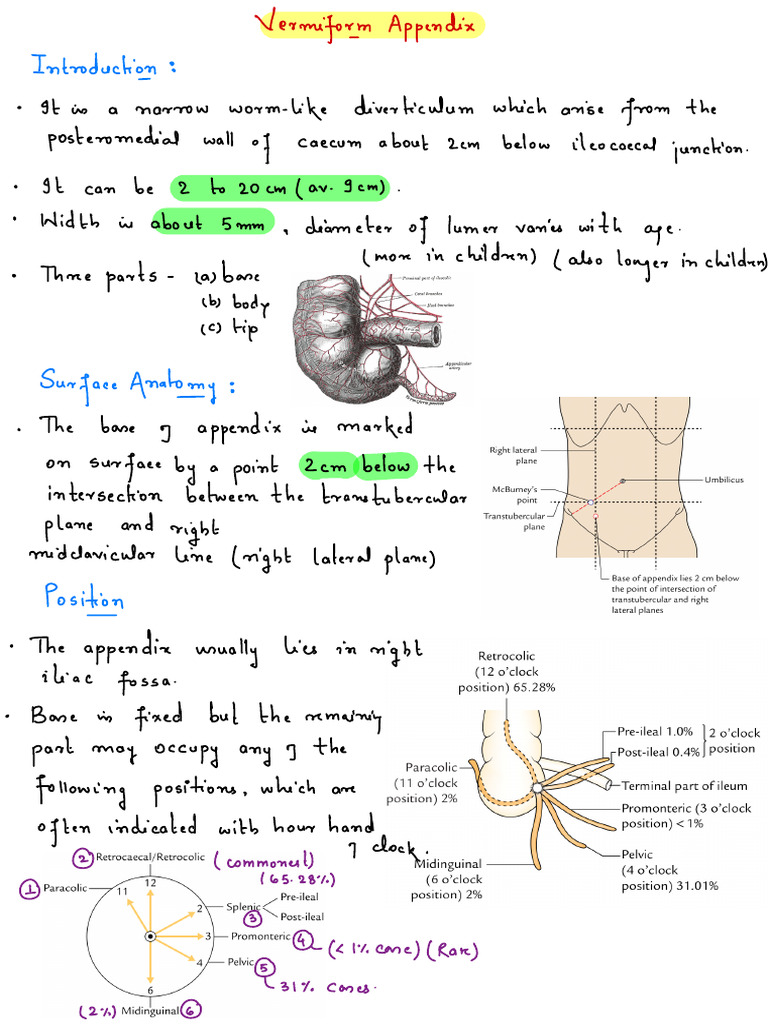 Vermiform Appendix
Introduction :
• It is a narrow worm-like diverticulum which arise from the
posteromedial wall of caecum about 2cm below ileocaecal junction.
• It can be 2 to 20 cm (av. 9 cm).
• Width is about 5mm, diameter of lumen varies with age.
(more in children) (also longer in children)
• Three parts - (a) base
(b) body
(c) tip
Appendicular
artery
Surface Anatomy :
• The base of appendix is marked
on surface by a point 2cm below the
intersection between the transtubercular
plane and right
midclavicular line (right lateral plane)
Right lateral
plane
McBurney's
point
Transtubercular
plane
Umbilicus
Base of appendix lies 2 cm below
the point of intersection of
transtubercular and right
lateral planes
Position
• The appendix usually lies in right
iliac fossa.
• Base is fixed but the remaining
part may occupy any of the
following positions, which are
often indicated with hour hand
of clock.
Retrocolic
(12 o'clock
position) 65.28%
Pre-ileal 1.0%
Post-ileal 0.4%
2 o'clock
position
Paracolic
(11 o'clock
position) 2%
Terminal part of ileum
Promonteric (3 o'clock
position) < 1%
Pelvic
(4 o'clock
position) 31.01%
Midinguinal
(6 o'clock
position) 2%
2 Retrocaecal/Retrocolic (commonest)
(65.28%)
1 Paracolic
11
12
2
3
4
6
Splenic
3
Pre-ileal
Post-ileal
Promonteric 4 (<1% case) (Rare)
Pelvic 5
31% cases.
(2%) Midinguinal 6